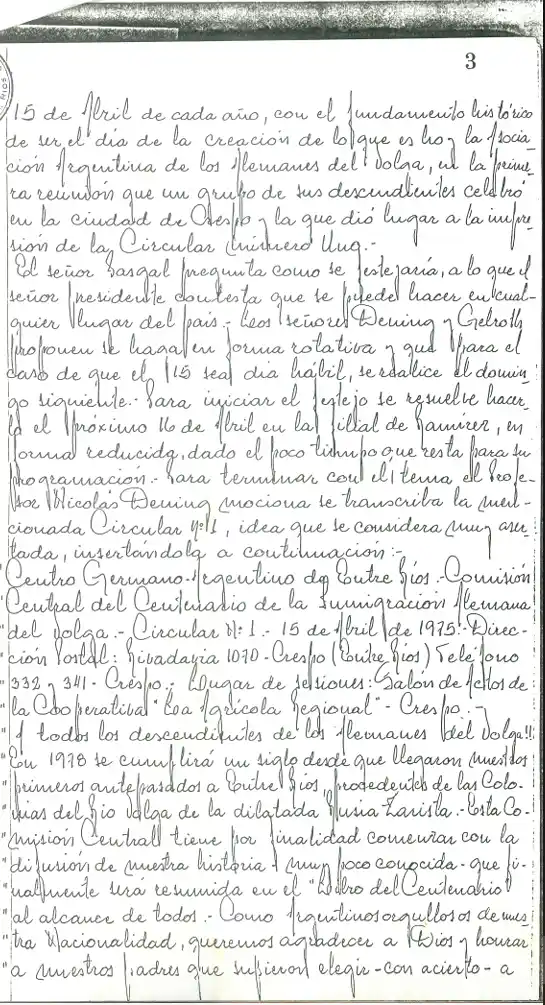 3
RIOS
15 de Abril de cada año, con el fundamento histórico
de ser el día de la creación de lo que es hoy la Asocia-
ción Argentina de los Alemanes del Volga, en la prime-
ra reunión que un grupo de sus descendientes celebró
en la ciudad de Crespo y la que dió lugar a la impre-
sión de la Circular Número Uno.-
El señor Gasgal pregunta como se festejaría, a lo que el
señor presidente contesta que se puede hacer en cual-
quier lugar del país.- Los señores Dening y Gelroth
proponen se haga en forma rotativa y que para el
caso de que el 15 sea día hábil, se realice el domin-
go siguiente.- Para iniciar el festejo se resuelve hacer-
lo el próximo 16 de Abril en la filial de Ramírez, en
forma reducida, dado el poco tiempo que resta para su
programación.- Para terminar con el tema el Profe-
sor Nicolás Dening mociona se transcriba la men-
cionada Circular Nº 1, idea que se considera muy acer-
tada, insertándola a continuación:-
"Centro Germano-Argentino de Entre Ríos.- Comisión
"Central del Centenario de la Inmigración Alemana
"del Volga.- Circular Nº 1.- 15 de Abril de 1975.- Direc-
"ción Postal: Rivadavia 1070 - Crespo (Entre Ríos) Teléfono
"332 y 341 - Crespo.- Lugar de sesiones: Salón de Actos de
"la Cooperativa "Loa Agrícola Regional" - Crespo.-
"A todos los descendientes de los Alemanes del Volga!!
"En 1978 se cumplirá un siglo desde que llegaron nuestros
"primeros antepasados a Entre Ríos, procedentes de las Colo-
"nias del Río Volga de la dilatada Rusia Zarista.- Esta Co-
"misión Central tiene por finalidad comenzar con la
"difusión de nuestra historia - muy poco conocida - que fi-
"nalmente será resumida en el "Libro del Centenario"
"al alcance de todos.- Como Argentinos orgullosos de nues-
"tra Nacionalidad, queremos agradecer a Dios y honrar
"a nuestros padres que supieron elegir - con acierto - a